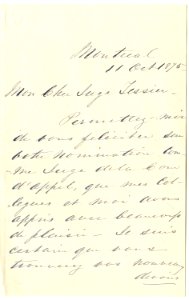 Montreal
11 Oct 1875
Mon Cher Juge Tessier
Permettez-moi
de vous féliciter sur
votre Nomination com-
me Juge de la Cour
d'appel, que mes col-
lègues et moi avons
appris avec beaucoup
de plaisir. Je suis
certain que vous
trouverez vos nouveaux
devoirs